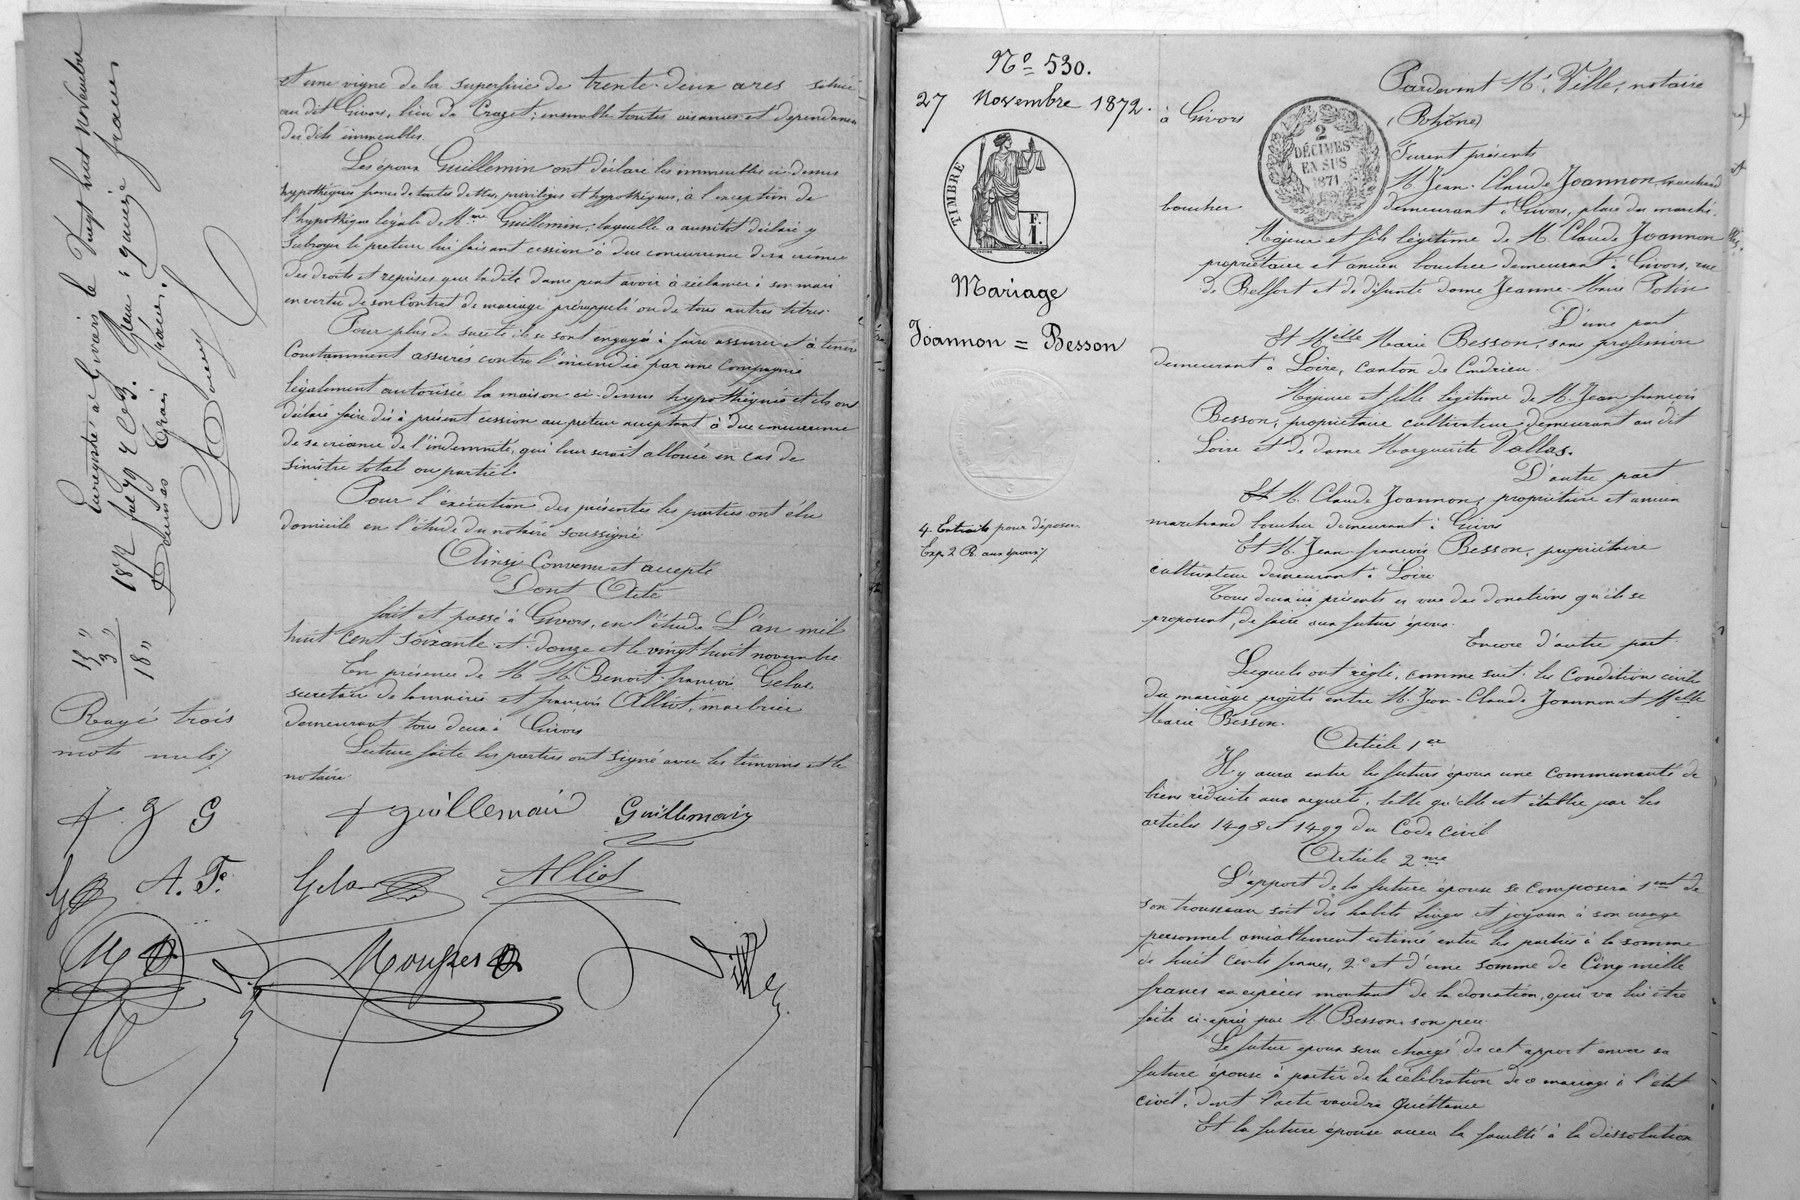 et une vigne de la superficie de trente-deux ares située
au dit Givors, lieu de Crozet; ensemble toutes aisances et dépendances
des dits immeubles.
Les époux Guillemin ont déclaré les immeubles ci-dessus
hypothéqués francs de toutes dettes, privilèges et hypothèques, à l'exception de
l'hypothèque légale de Mme Guillemin, laquelle a aussitôt déclaré y
subroger le prêteur lui faisant cession à due concurrence de sa créance
des droits et reprises que la dite dame peut avoir à réclamer à son mari
en vertu de son Contrat de mariage prérappelé ou de tous autres titres.
Pour plus de sureté ils se sont engagés à faire assurer et à tenir
Constamment assurés contre l'incendie par une Compagnie
légalement autorisée la maison ci-dessus hypothéquée et ils ont
déclaré faire dès à présent cession au prêteur acceptant à due concurrence
de sa créance de l'indemnité, qui leur serait allouée en cas de
sinistre total ou partiel.
Pour l'exécution des présentes les parties ont élu
domicile en l'étude du notaire soussigné
Ainsi Convenu et accepté
Dont Acte
fait et passé à Givors, en l'étude L'an mil
huit cent soixante et douze et le vingt huit novembre
En présence de M M. Benoît-françois Gelas,
secrétaire de la mairie et françois Alliot, marbrier
demeurant tous deux à Givors
Lecture faite les parties ont signé avec les témoins et le
notaire
+ guillemain Guillemain
Gelas Alliot
Ville
Enregistré à Givors le Vingt huit novembre
1872
15"
3"
18"
Rayé trois
mots nuls
f. g G
A. Fs
No 530.
27 Novembre 1872.
TIMBRE
F.
I.
Mariage
Joannon = Besson
4 Extraits pour déposer
Exp. 2 R. aux époux
2
DÉCIMES
EN SUS
1871
Pardevant Me Ville, notaire
à Givors (Rhône)
Furent présents
M. Jean-Claude Joannon marchand
boucher demeurant à Givors, place du marché.
Majeur et fils légitime de M. Claude Joannon
propriétaire et ancien boucher demeurant à Givors, rue
de Belfort et de défunte dame Jeanne-Marie Potin
D'une part
Et Melle Marie Besson, sans profession
demeurant à Loire, canton de Condrieu.
Majeure et fille légitime de M. Jean-françois
Besson, propriétaire cultivateur demeurant au dit
Loire et de dame Marguerite Vallas.
D'autre part
Et M. Claude Joannon, propriétaire et ancien
marchand boucher demeurant à Givors
Et M. Jean-françois Besson, propriétaire
cultivateur demeurant à Loire
Tous deux ici présents en vue des donations qu'ils se
proposent, de faire aux futurs époux.
Encore d'autre part.
Lesquels ont réglé, comme suit, les Conditions civiles
du mariage projeté entre M. Jean-Claude Joannon et Melle
Marie Besson.
Article 1er
Il y aura entre les futurs époux une communauté de
biens réduite aux acquets, telle qu'elle est établie par les
articles 1498 et 1499 du Code civil
Article 2me
L'apport de la future épouse se composera 1ent de
son trousseau soit des habits linges et joyaux à son usage
personnel amiablement estimé entre les parties à la somme
de huit cents francs, 2° et d'une somme de Cinq mille
francs en espèces montant de la donation, qui va lui être
faite ci-après par M. Besson son père
Le futur époux sera chargé de cet apport envers sa
future épouse à partir de la célébration de ce mariage à l'état
civil, dont l'acte vaudra Quittance
Et la future épouse aura la faculté à la dissolution